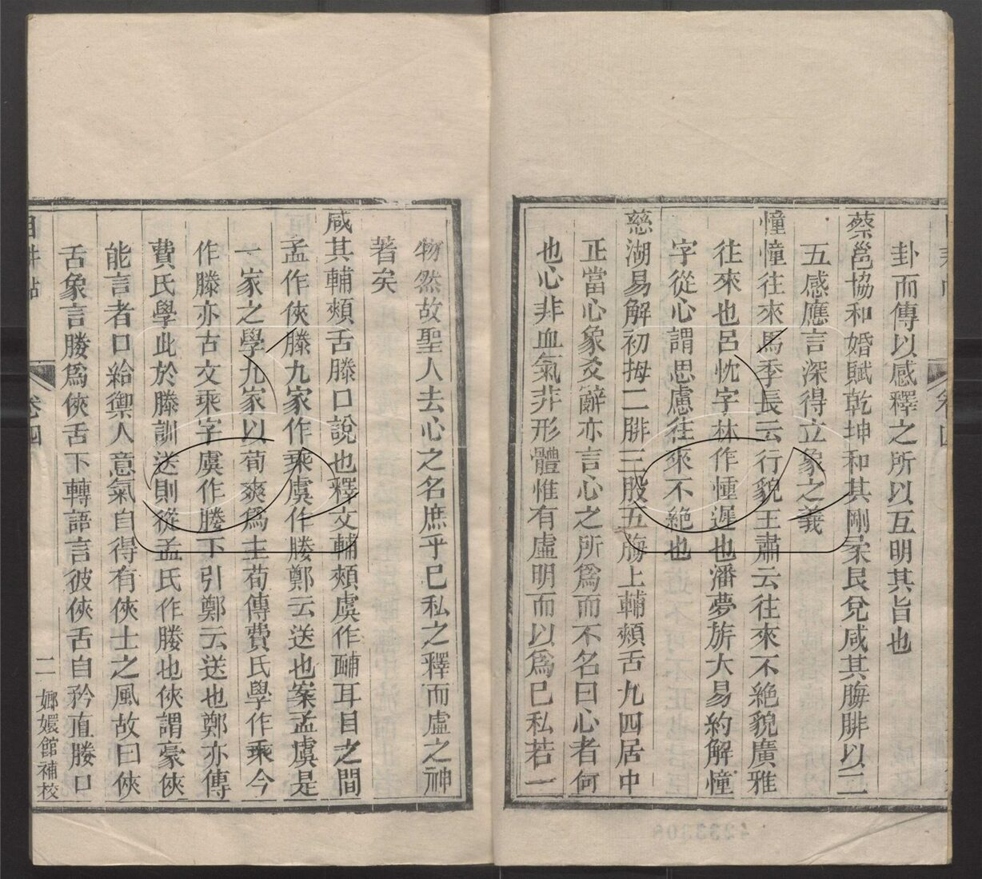 卦而傳以感釋之所以互明其旨也
蔡邕協和婚賦乾坤和其剛柔艮兌咸其脢腓以二
五感應言深得立象之義
憧憧往來馬季長云行貌王肅云往來不絕貌廣雅
往來也呂忱字林作憧遲也潘夢旂大易約解憧
字從心謂思慮往來不絕也
慈湖易解初拇二腓三股五脢上輔頰舌九四居中
正當心象爻辭亦言心之所爲而不名曰心者何
也心非血氣非形體惟有虛明而以爲己私若一
物然故聖人去心之名庶乎己私之釋而虛之神
著矣
咸其輔頰舌滕口說也釋文輔頰虞作䩉耳目之間
孟作俠滕九家作乘虞作媵鄭云送也案孟虞是
一家之學九家以荀爽爲主荀傳費氏學作乘今
作滕亦古文乘字虞作媵下引鄭云送也鄭亦傳
費氏學此於滕訓送則從孟氏作媵也俠謂豪俠
能言者口給禦人意氣自得有俠士之風故曰俠
舌象言媵爲俠舌下轉語言彼俠舌自矜直媵口
卷四
二
嫏嬛館補校